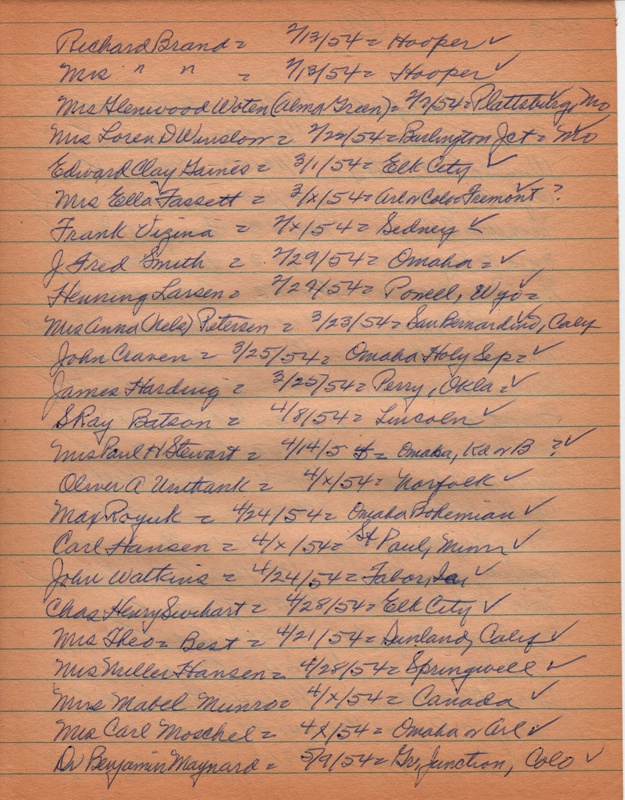 Richard Brand = 2/13/54 = Hooper ✓
Mrs " " = 2/13/54 = Hooper ✓
Mrs Glenwood Woten (Alma Green) = 2/2/54 = Plattsburg, Mo ✓
Mrs Loren D Winslow = 2/22/54 = Burlington Jct = Mo ✓
Edward Clay Gaines = 3/1/54 = Elk City ✓
Mrs Ella Fassett = 3/x/54 = Arl or Colo = Fremont ? ✓
Frank Vizina = 2/x/54 = Sedney ✓
J Fred Smith = 2/29/54 = Omaha = ✓
Henning Larsen = 2/27/54 = Powell, Wyo = ✓
Mrs Anna (Nels) Petersen = 3/23/54 = San Bernardino, Calif ✓
John Craven = 3/25/54 = Omaha Holy Sep = ✓
James Harding = 3/25/54 = Perry, Okla = ✓
S Ray Batson = 4/8/54 = Lincoln ✓
Mrs Paul H Stewart = 4/14/54 = Omaha, or B ? ✓
Oliver A Unthank = 4/x/54 = Norfolk ✓
Max Royuk = 4/24/54 = Omaha Bohemian ✓
Carl Hansen = 4/x/54 = St Paul, Minn ✓
John Watkins = 4/24/54 = Tabor, Ia ✓
Chas Henry Swihart = 4/28/54 = Elk City ✓
Mrs Theo = Best = 4/21/54 = Sunland, Calif ✓
Mrs Miller Hansen = 4/28/54 = Springwell ✓
Mrs Mabel Munro = 4/x/54 = Canada ✓
Mrs Carl Moschel = 4/x/54 = Omaha or Arl ✓
Dr Benjamin Maynard = 5/9/54 = Gr, Junction, Colo ✓